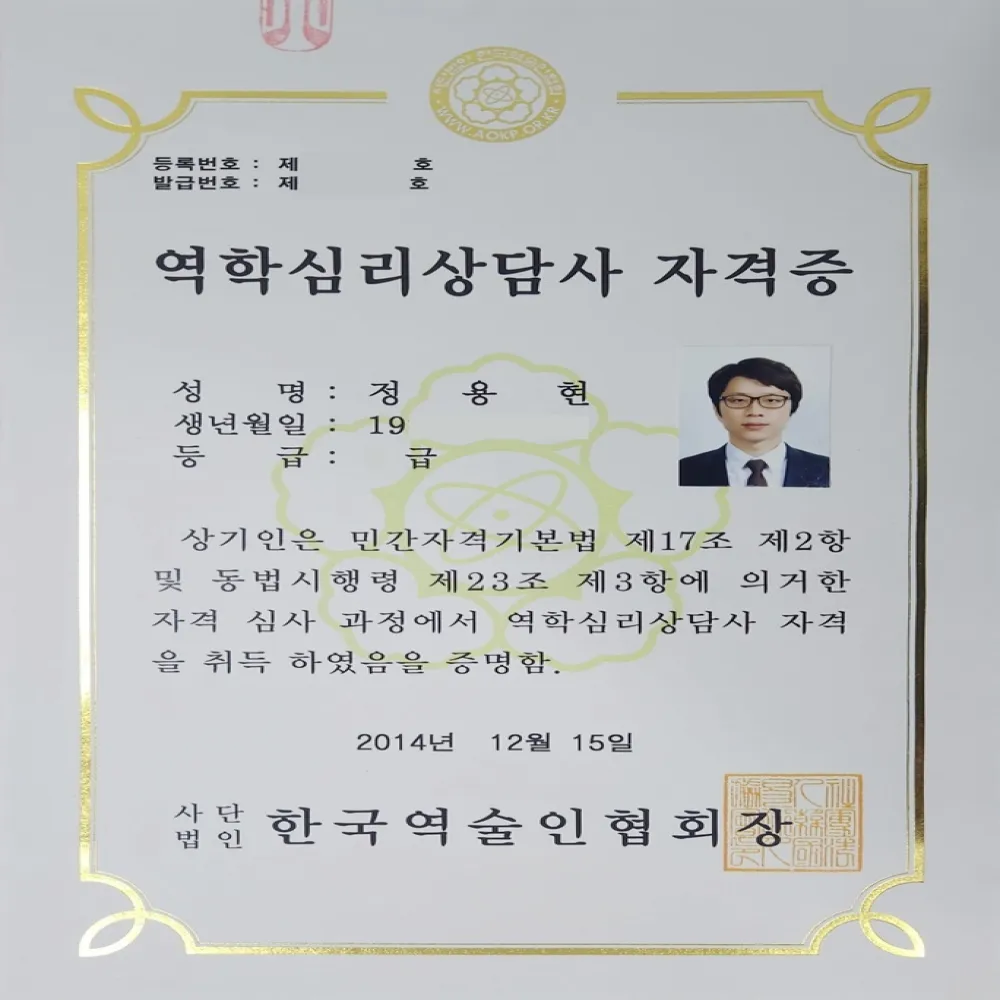 WWW.AOKP.OR.KR
등록번호 : 제 호
발급번호 : 제 호
역학심리상담사 자격증
성 명 : 정 용 현
생년월일 : 19
등 급 : 급
상기인은 민간자격기본법 제17조 제2항
및 동법시행령 제23조 제3항에 의거한
자격 심사 과정에서 역학심리상담사 자격
을 취득 하였음을 증명함.
2014년 12월 15일
사단
법인 한국역술인협회장